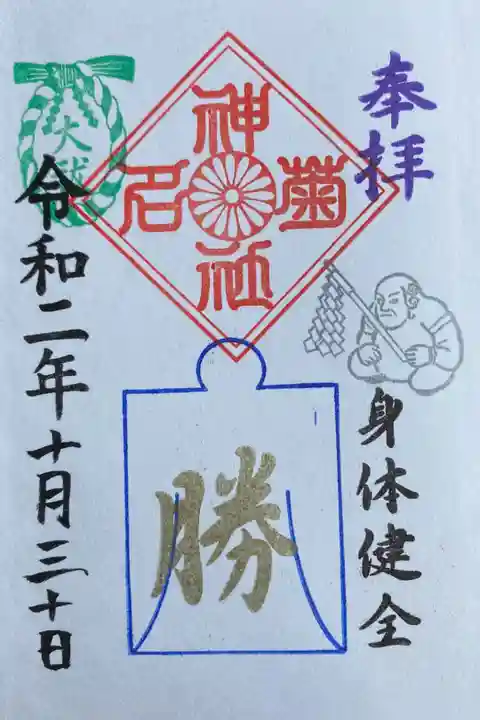 奉拝
身体健全
菊名神社
勝
大祓
令和二年十月三十日